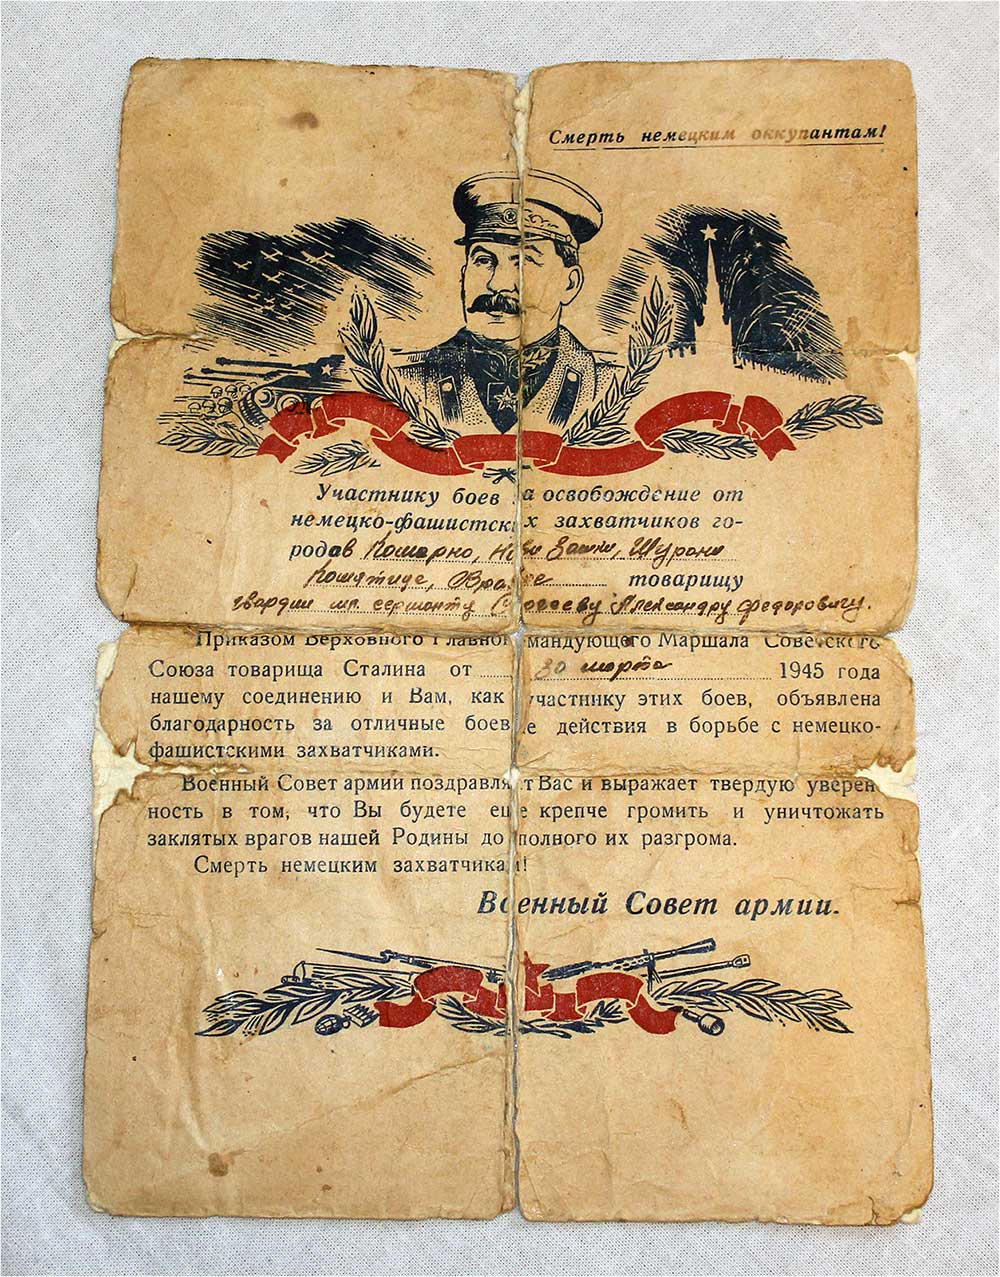 Смерть немецким оккупантам!
Участнику боев за освобождение от
немецко-фашистских захватчиков го-
родов Комарно, Нове Замки, Шураны
Комятице, Врабле товарищу
гвардии мл. сержанту Александру Федоровичу.
Приказом Верховного Главнокомандующего Маршала Советского
Союза товарища Сталина от 30 марта 1945 года
нашему соединению и Вам, как участнику этих боев, объявлена
благодарность за отличные боевые действия в борьбе с немецко-
фашистскими захватчиками.
Военный Совет армии поздравляет Вас и выражает твердую уверен-
ность в том, что Вы будете еще крепче громить и уничтожать
заклятых врагов нашей Родины до полного их разгрома.
Смерть немецким захватчикам!
Военный Совет армии.